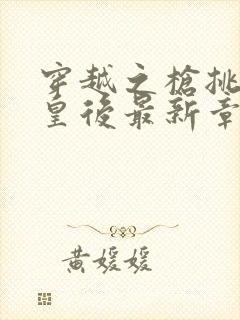 穿越之槍挑
皇後最新章
黄媛媛